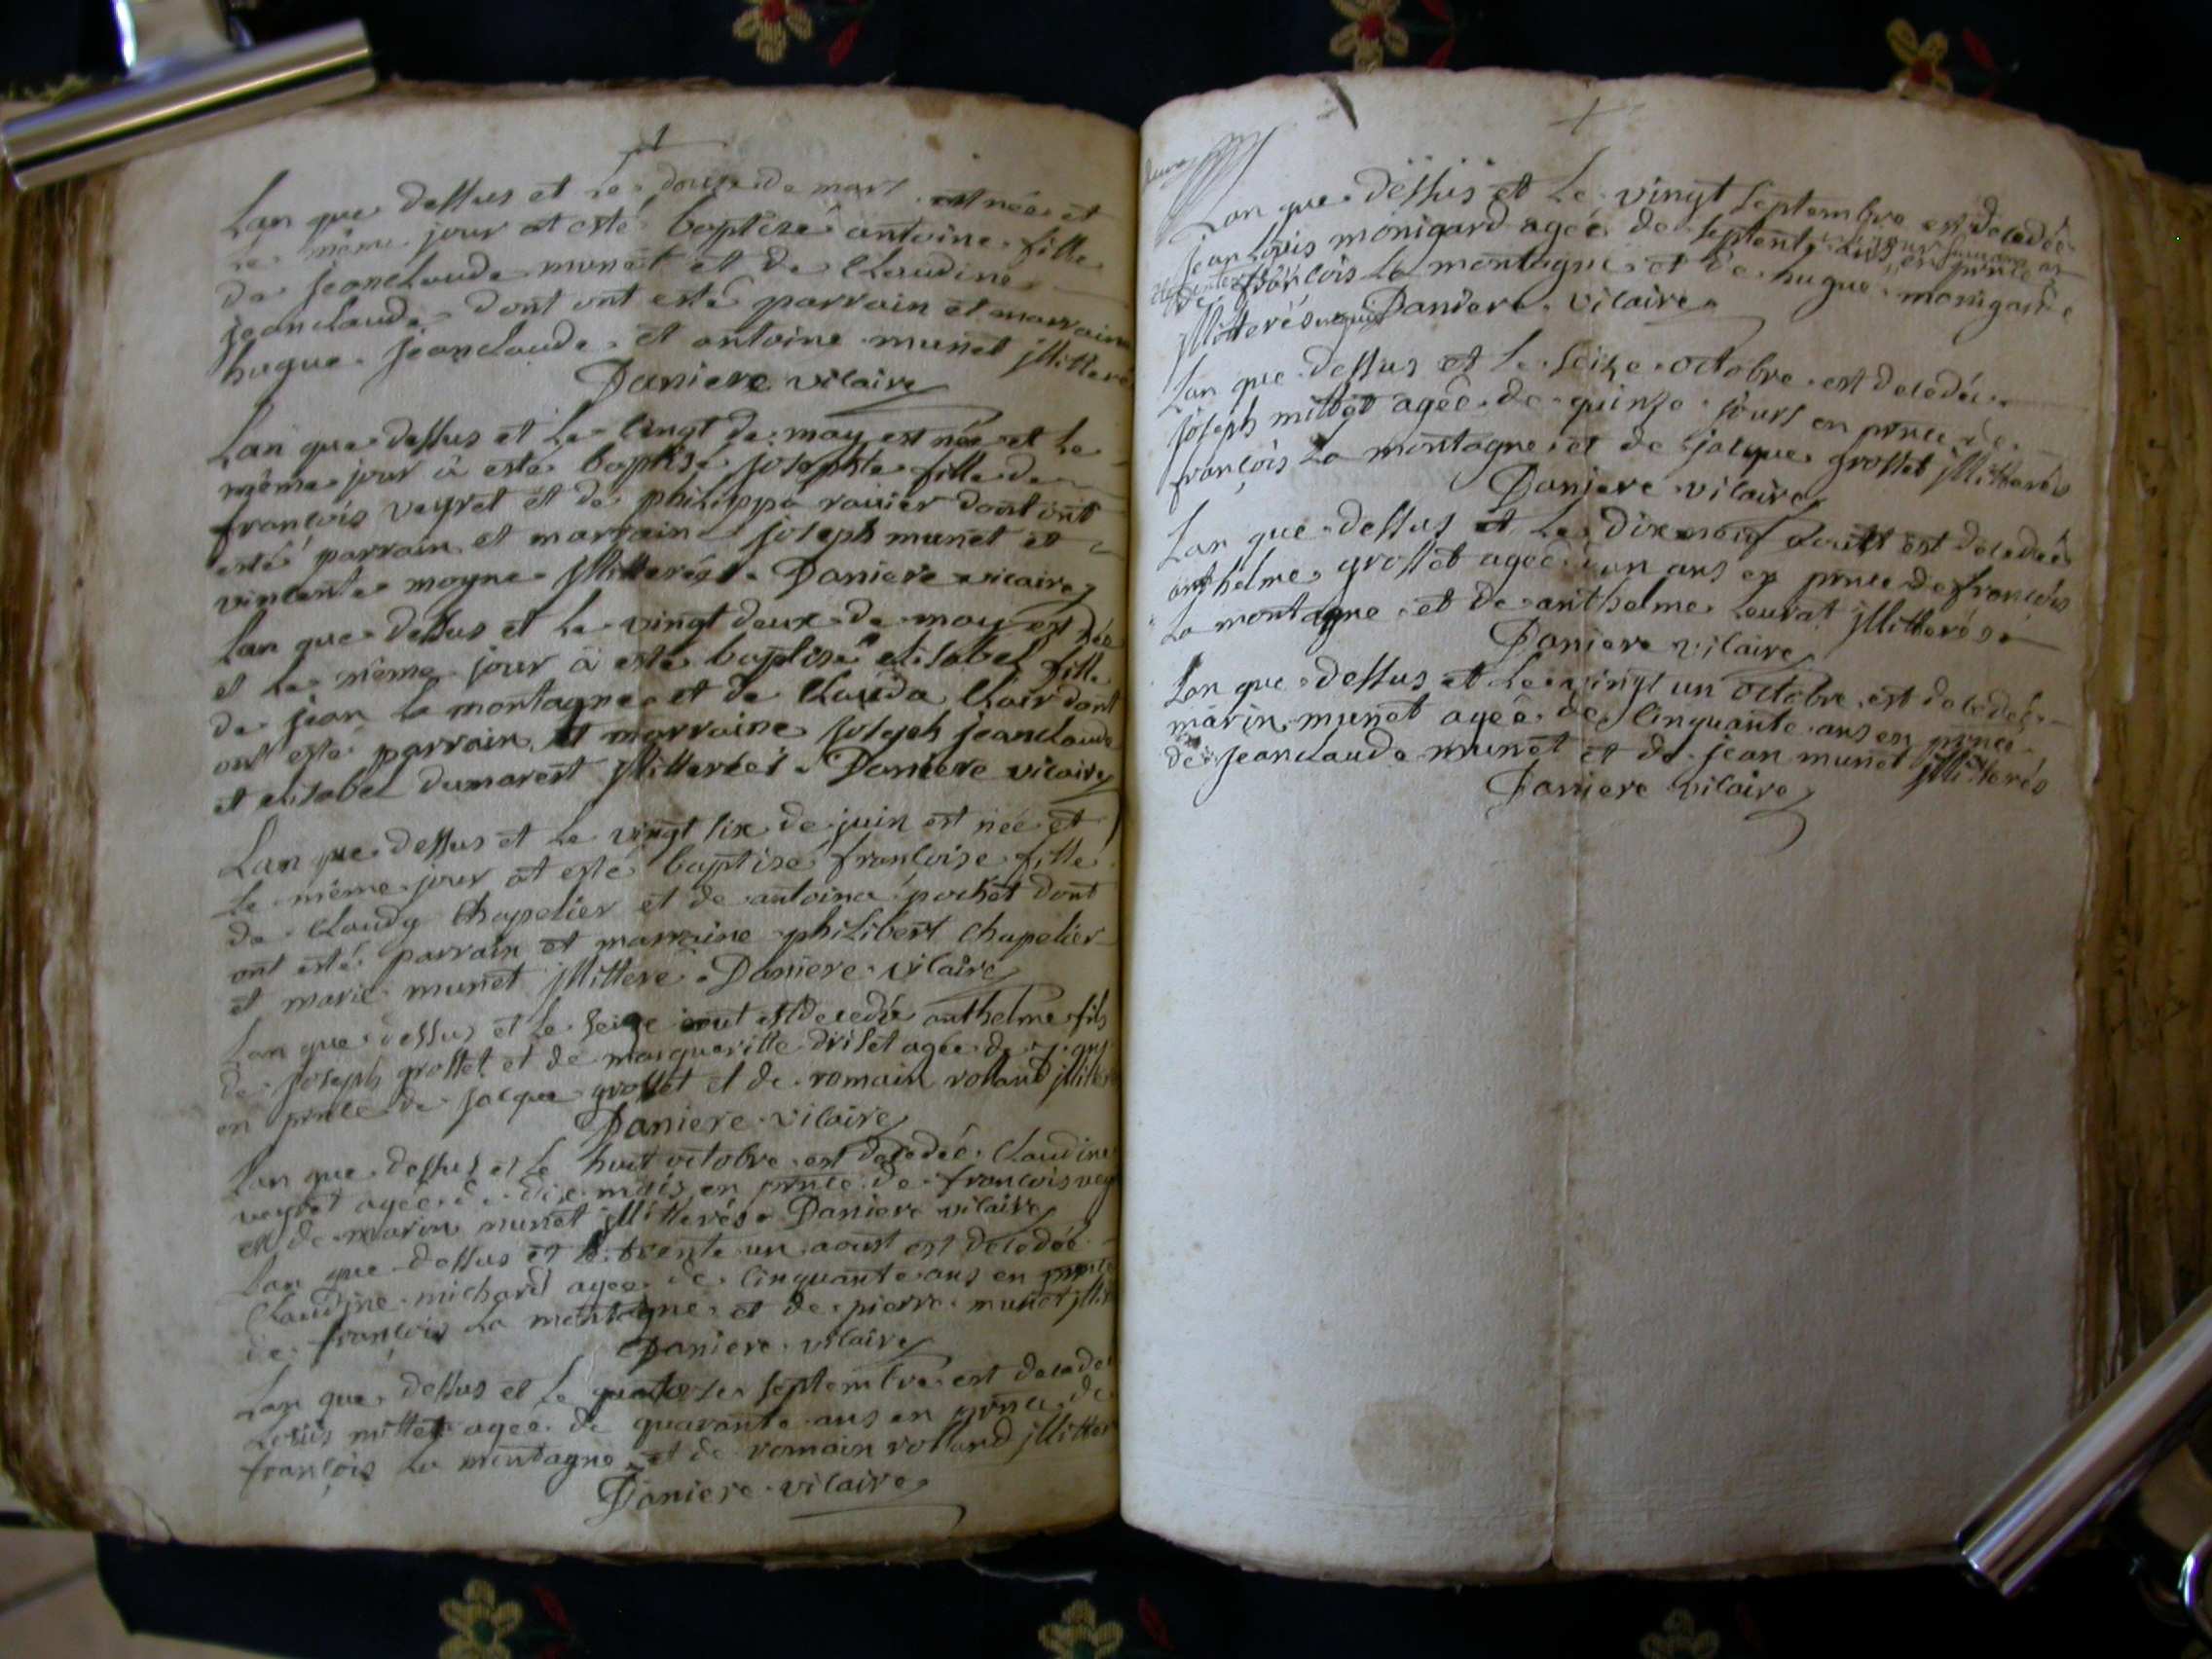 Lan que dessus et Le douze de mars est née et
Le même jour at esté baptizé antoine fille
de jeanclaude munet et de Claudine
jeanclaude dont ont esté parrain et marraine
hugue jeanclaude et antoine munet jllitteré
Daniere vicaire
Lan que dessus et Le vingt de may est née et Le
même jour à esté baptisé josephte fille de
françois veyret et de philippa ravier dont ont
esté parrain et marrain joseph munet et
vincente moyne jllitterés Daniere vicaire
Lan que dessus et Le vingt deux de may est née
et Le même jour à esté baptisé elisabel fille
de jean la montagne et de Clauda Clair dont
ont esté parrain et marraine joseph jeanclaude
et elisabel dumarest jllitterées Daniere vicaire
Lan que dessus et Le vingt six de juin est née et
Le même jour at esté baptisé françoise fille
de Claudy Chapelier et de antoina pochet dont
ont esté parrain et marraine philibert Chapelier
et marie munet jllitteré Daniere vicaire
Lan que dessus et Le seize aout est decedée anthelme fils
de joseph grosset et de margueritte driset agée de 7 ans
en prnce de jacque grosset et de romain rolland jllite
Daniere vicaire
Lan que dessus et Le huit octobre est decedée Claudine
veyret agée de dix mois en prnce de françois vey
et de marin munet jllitterés Daniere vicaire
Lan que dessus et Le trente un aoust est decedée
Claudine michard agee de Cinquante ans en prnce
de françois La montagne et de pierre munet jllit
Daniere vicaire
Lan que dessus et Le quatorse septembre est decede
Louis millet agée de quarante ans en prnce de
françois La montagne et de romain rolland jllitter
Daniere vicaire
Lan que dessus et Le vingt septembre est decedée
jean Louis monigard agée de septente ans en prnce
de françois La montagne et de hugue monigard
jllitterés Daniere vicaire
Lan que dessus et Le seize octobre est decedée
joseph millet agée de quinze jours en prnce de
françois La montagne et de jacque grosset jllitterés
Daniere vicaire
Lan que dessus et Le dix neuf aoust est decedée
anthelme grosset agée un ans en prnce de françois
La montagne et de anthelme Leurat jllitterés
Daniere vicaire
Lan que dessus et Le vingt un octobre est decedée
marin munet agée de Cinquante ans en prnce
de jeanclaude munet et de jean munet jllitterés
Daniere vicaire